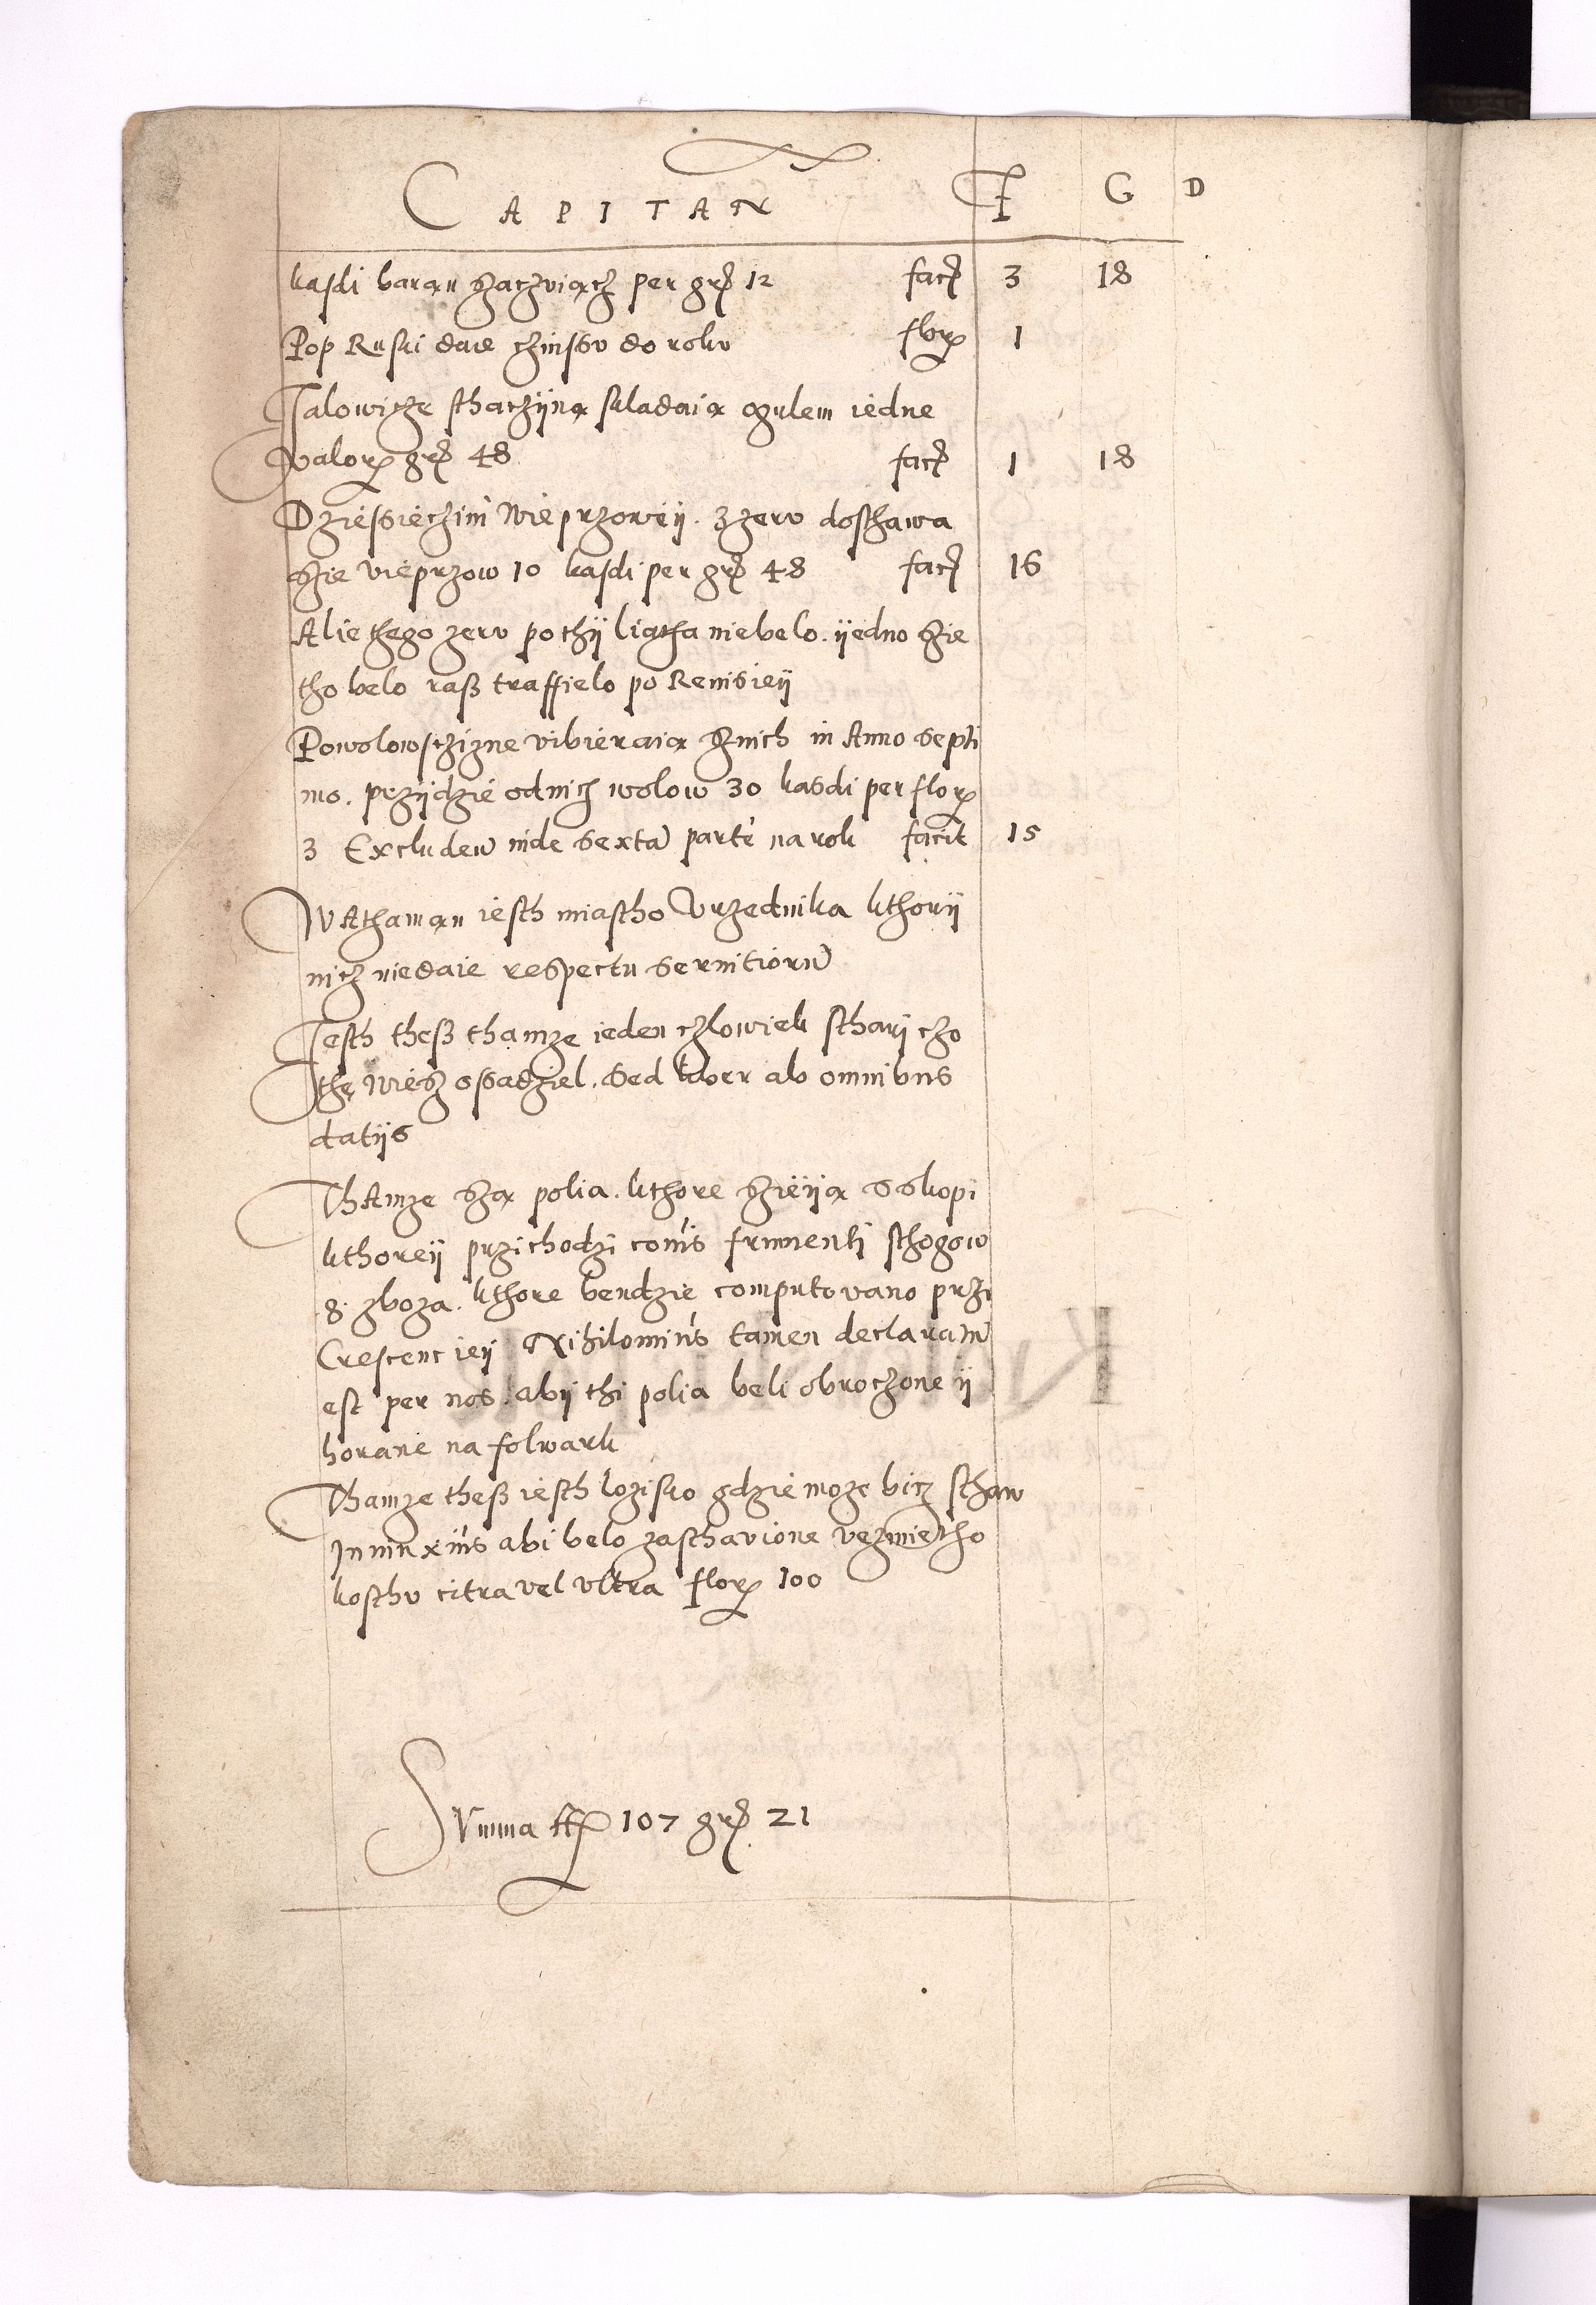 CAPITAN F G D
kasdi baran szaczuiącz per grʒ 12 facʒ 3 18
Pop Ruski daie czinssu do roku florʒ 1
Jalowicze sthaczÿną skladaią ogulem iedne
valorʒ grʒ 48 facʒ 1 18
Dziessieczin Wieprzoweÿ. Zzeru dosthawa
szie vieprzow 10 kasdi per grʒ 48 facʒ 16
Alie thego zeru pothÿ liatha niebelo. ÿedno szie
tho belo raß traffielo po Remisieÿ
Powolowsczizne vibieraią sznich in Anno septi
mo. przÿdzie odnich wolow 30 kasdi per florʒ
3 Excludeu inde sextā partē na rok facit 15
WAthaman iesth miastho Vrzednika kthorÿ
nicz niedaie respectu seruitiorū
Jesth theß thamze ieden czlowiek stharÿ czo
thę wiesz ossadziel. sed liber ab omnibus
datÿs
ThAmze szą polia. kthore szieÿą sskopi
kthoreÿ przichodzi coīus frumenti sthogow
8. zboza. kthore bendzie computowano przi
Crescencieÿ Nihilominus tamen declaratū
est per nos. abÿ thi polia beli obroczone ÿ
horane na folwark
Thamze theß iesth lozisko gdzie moze bicz sthaw
Jnmuxius abi belo zasthavione vezmie tho
kosthu citra vel vltra florʒ 100
SVmma ffʒ 107 grʒ 21